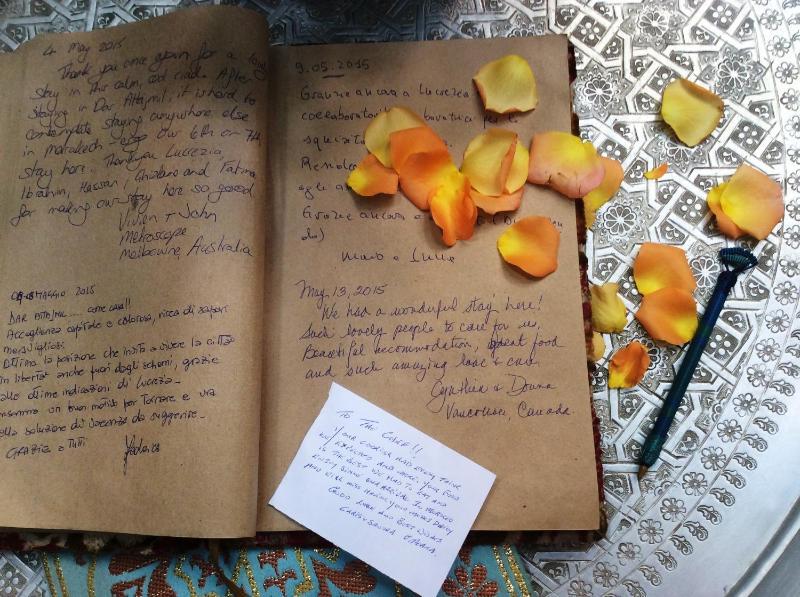 4 May 2015
Thank you once again for a long
stay in this calm, cool riad. After
staying in Dar Attajmil, it is hard to
contemplate staying anywhere else
in Marakech - our 6th or 7th
stay here. Thankyou Lucrezia,
Ibrahim, Hassan, Ghizlane and Fatima
for making our stay here so good
Vivien + John
Metroscape
Melbourne, Australia
MAGGIO 2015
DAR ATTAJMIL ... come casa!!
Accoglienza capitale e calorosa, ricca di sapori
meravigliosi
Ottima la posizione che invita a vivere la città
in libertà anche fuori dagli schemi, grazie
alle ottime indicazioni di Lucrezia.
Insomma un buon motivo per tornare e una
bella soluzione di vacanza da suggerire.
GRAZIE a TUTTI
9.05.2015
Grazie ancora a Lucrezia
collaboratori
squisit
Grazie ancora
May 13, 2015
We had a wonderful stay here!
Such lovely people to care for us.
Beautiful accommodation, great food
and such amazing love & care.
Cynthia & Donna
Vancouver, Canada.
TO THE CHEF!!
YOUR COOKING HAD EVERY THING
WE EXPECTED AND MORE. YOUR FOOD
IS THE BEST WE HAD TO EAT AND
ENJOY SINCE OUR ARRIVAL IN MOROCCO
AND WILL MISS HAVING YOUR DAILY
GOOD LUCK AND BEST WISHES
CANADA